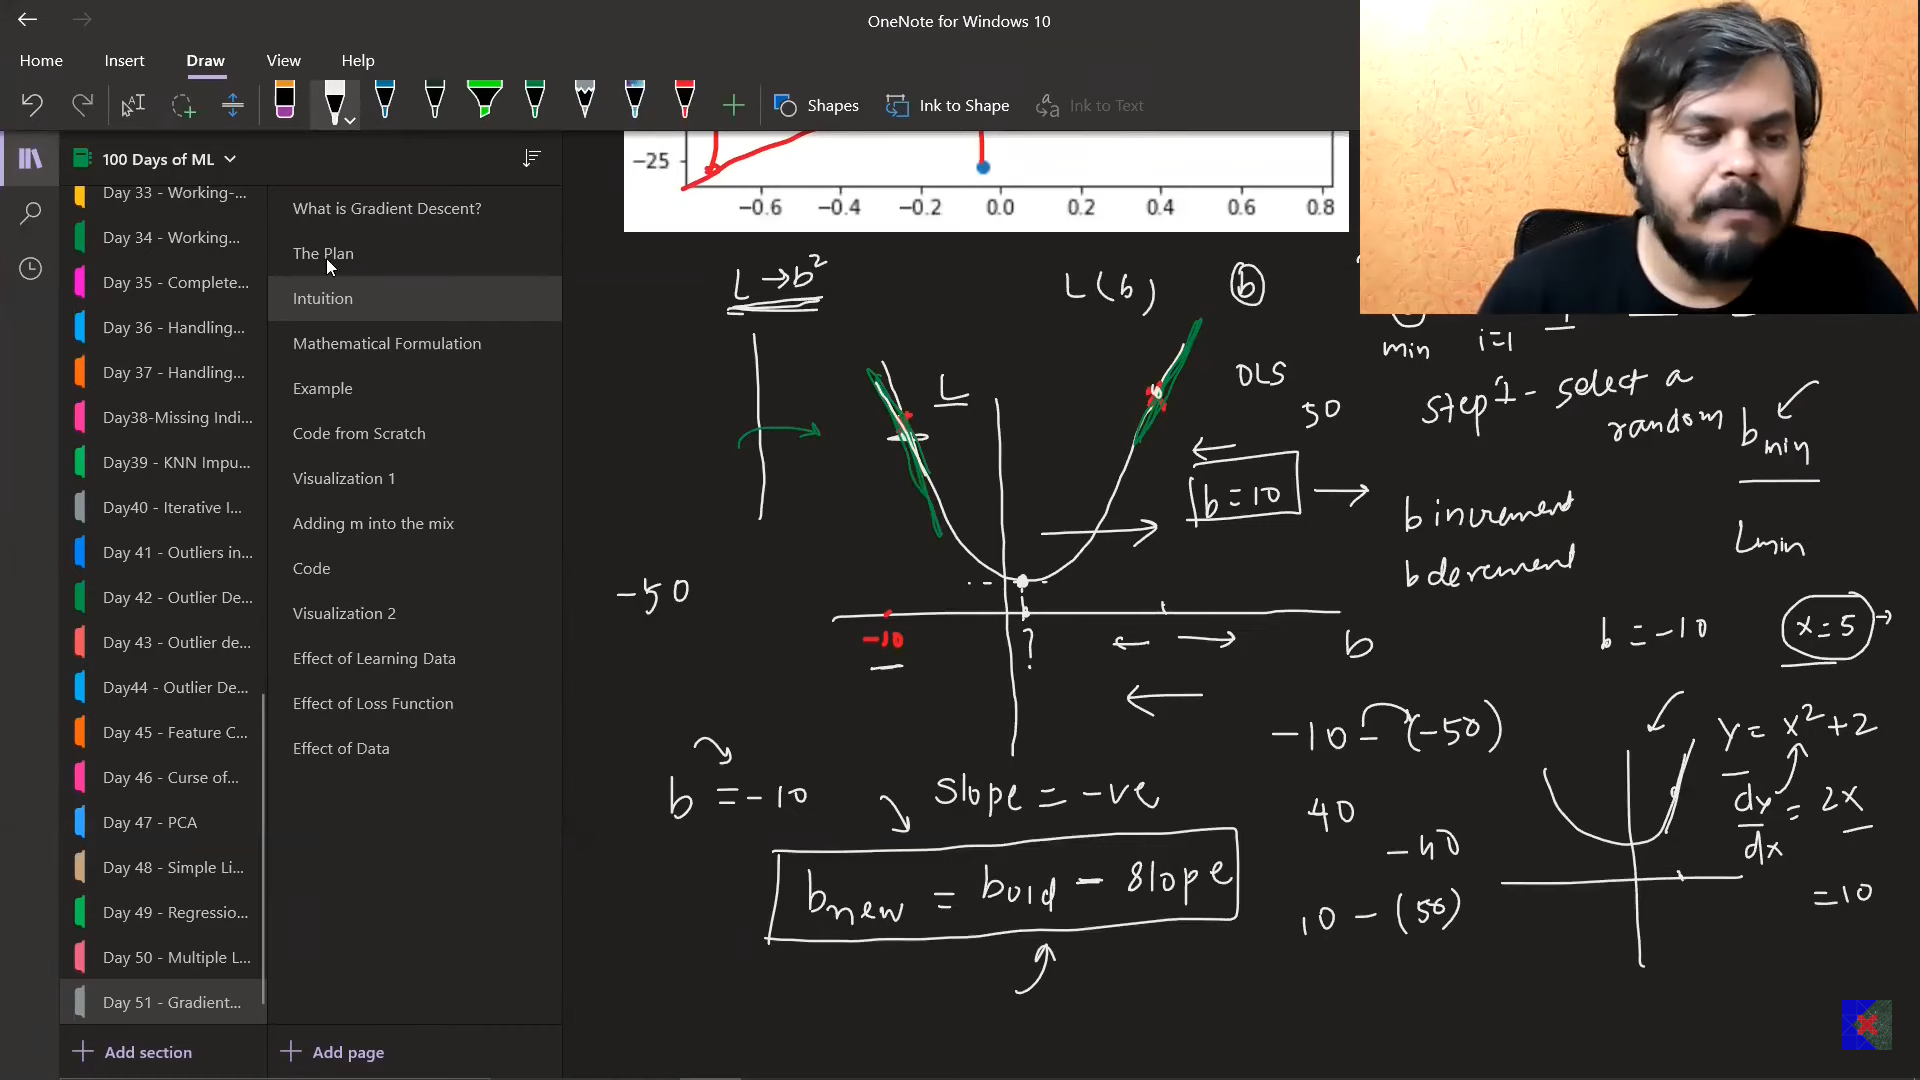 OneNote for Windows 10
Home Insert Draw View Help
Shapes Ink to Shape Ink to Text
100 Days of ML
Day 33 - Working-...
Day 34 - Working...
Day 35 - Complete...
Day 36 - Handling...
Day 37 - Handling...
Day38-Missing Indi...
Day39 - KNN Impu...
Day40 - Iterative I...
Day 41 - Outliers in...
Day 42 - Outlier De...
Day 43 - Outlier de...
Day44 - Outlier De...
Day 45 - Feature C...
Day 46 - Curse of...
Day 47 - PCA
Day 48 - Simple Li...
Day 49 - Regressio...
Day 50 - Multiple L...
Day 51 - Gradient...
Add section
What is Gradient Descent?
The Plan
Intuition
Mathematical Formulation
Example
Code from Scratch
Visualization 1
Adding m into the mix
Code
Visualization 2
Effect of Learning Data
Effect of Loss Function
Effect of Data
Add page
−25
−0.6 −0.4 −0.2 0.0 0.2 0.4 0.6 0.8
L → b²
L(b) b
min i=1
L
OLS
50
step 1 - select a
random
b min
b = 10
b increment
b decrement
Lmin
-50
-10
?
b
b = -10
x = 5
-10 - (-50)
y = x² + 2
b = -10
slope = -ve
40
dy/dx = 2x
-40
b new = b old - slope
10 - (50)
= 10